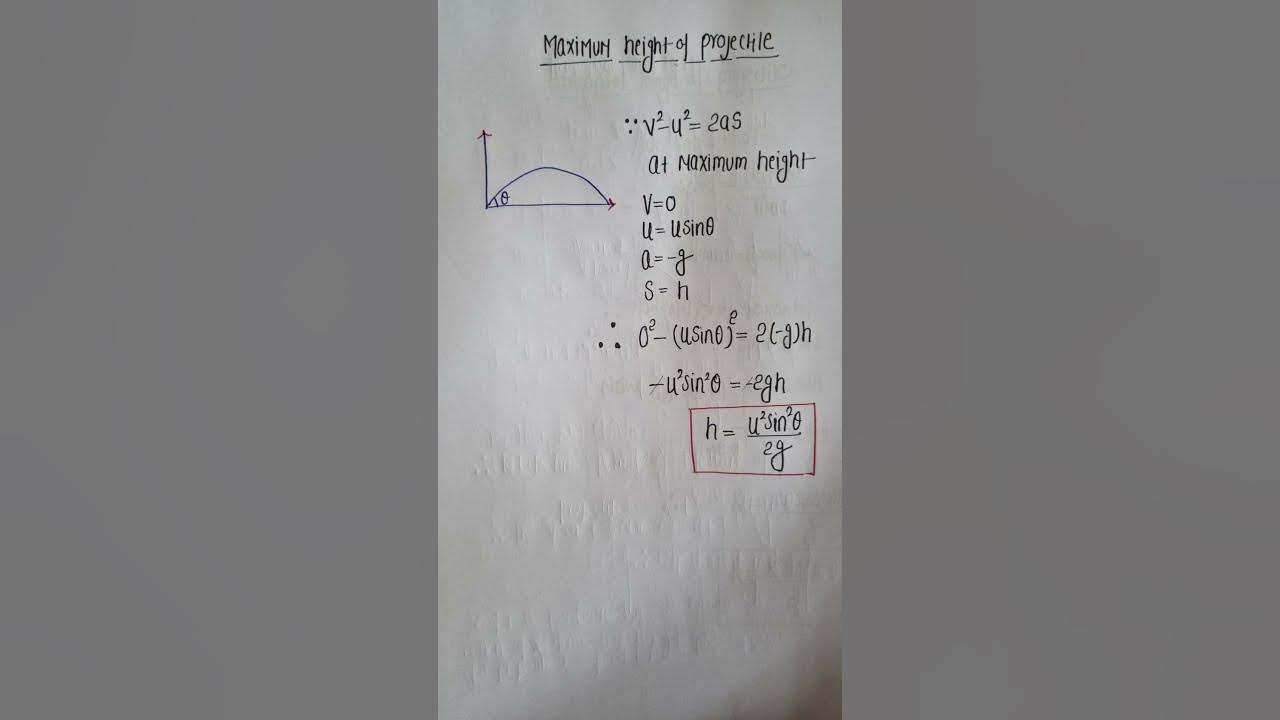 Maximum height of projectile
∵ v²-u² = 2as
at maximum height
θ
v=0
u = usinθ
a = -g
s = h
∴ 0² - (usinθ)² = 2(-g)h
-u²sin²θ = -2gh
h = u²sin²θ/2g